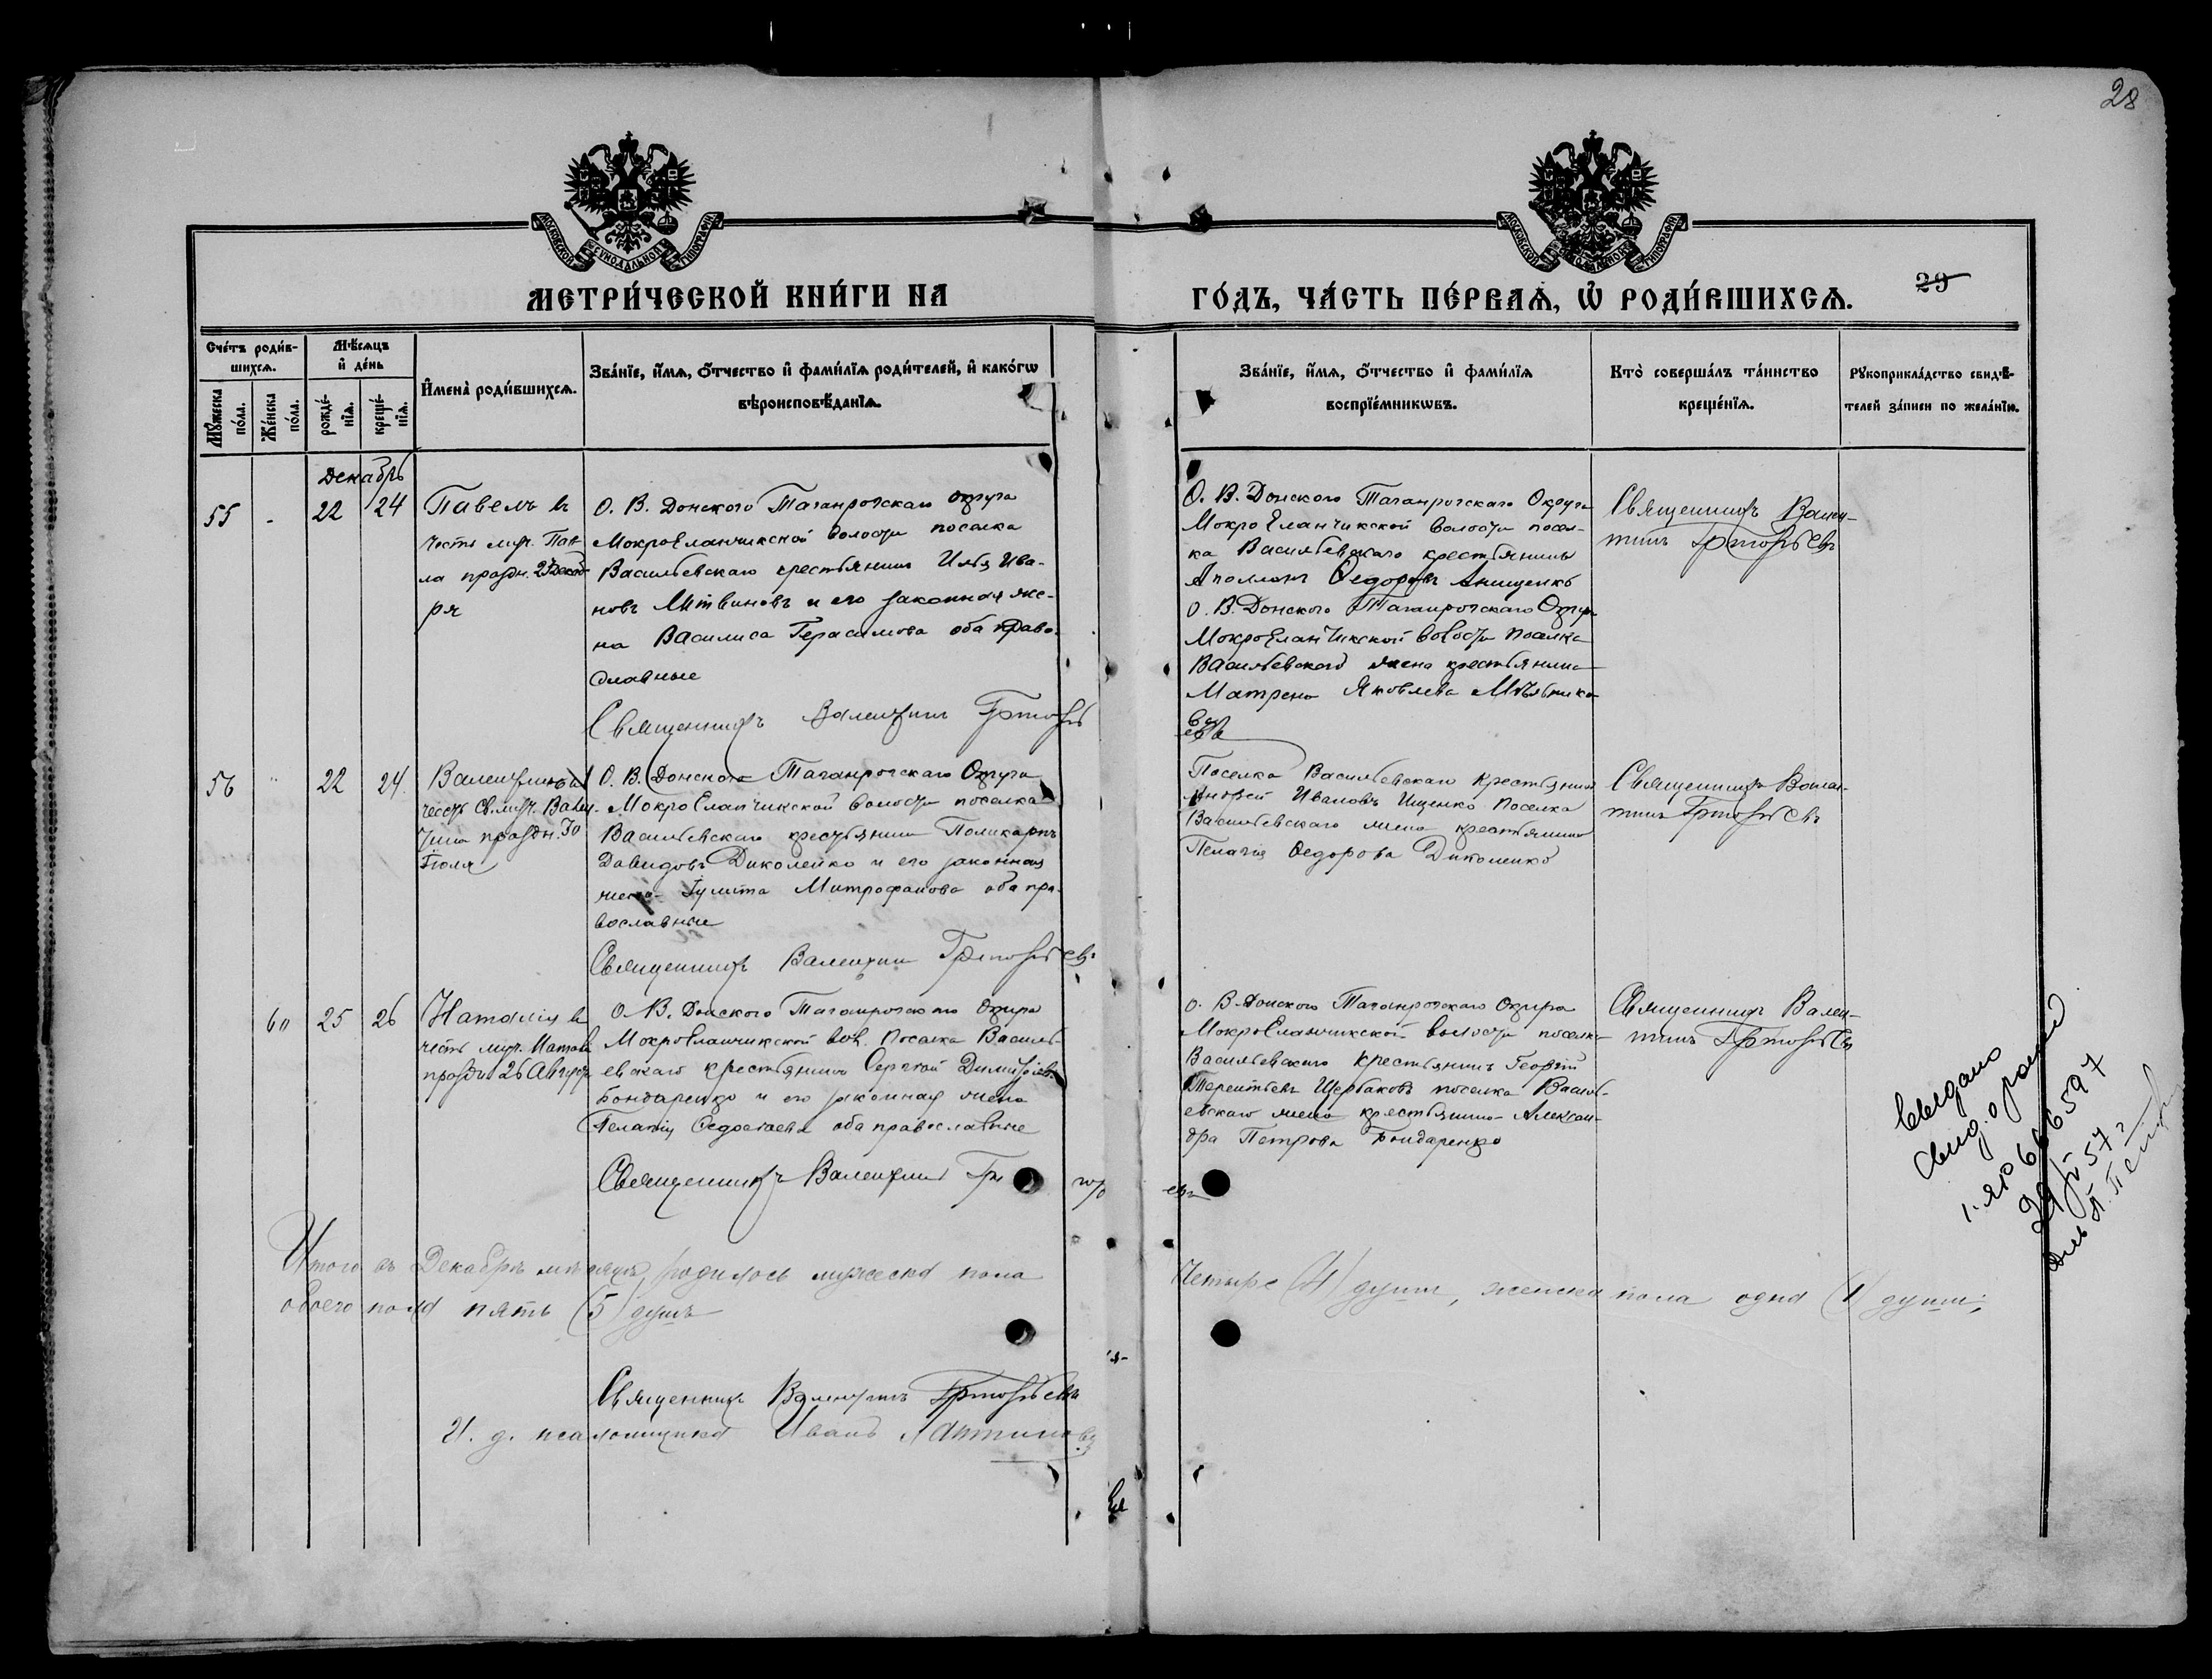 28
МОСКОВСКОЙ СѴНОДАЛЬНОЙ ТИПОГРАФІИ
МОСКОВСКОЙ СѴНОДАЛЬНОЙ ТИПОГРАФІИ
МЕТРИ́ЧЕСКОЙ КНИ́ГИ НА
ГО́ДЪ, ЧА́СТЬ ПЕ́РВАѦ, Ѽ РОДИ́ВШИХСѦ.
29
Сче́тъ роди́в-
шихсѧ.
Мѣ́сѧцъ
и҆ де́нь
Мꙋ́жеска
по́ла.
Же́нска
по́ла.
рожде́-
нїѧ.
креще́-
нїѧ.
И҆мена̀ роди́вшихсѧ.
Зва́нїе, и҆́мѧ, ѻ҆́тчество и҆ фами́лїѧ роди́телей, и҆ како́гѡ
вѣроисповѣ́данїѧ.
Зва́нїе, и҆́мѧ, ѻ҆́тчество и҆ фами́лїѧ
воспрїе́мникѡвъ.
Кто̀ соверша́лъ та́инство
креще́нїѧ.
Рꙋкоприкла́дство свидѣ́-
телей за́писи по жела́нїю.
Декабрь
55
-
22
24
Павелъ въ
честь муч. Пав-
ла праздн. 23 Декаб-
ря
О. В. Донского Таганрогскаго округа
МокроЕланчикской волости поселка
Васильевскаго крестьянинъ Илья Ива-
новъ Литвиновъ и его законная же-
на Василиса Герасимова оба право-
славные
Священникъ Валентинъ Григорьевъ
О. В. Донского Таганрогскаго Округа
МокроЕланчикской волости посел-
ка Васильевскаго крестьянинъ
Аполлонъ Ѳедоровъ Анищенко
О. В. Донского Таганрогскаго Округа
МокроЕланчикской волости поселка
Васильевского жена крестьянина
Матрена Яковлева Мельнико-
ва
Священникъ Вален-
тинъ Григорьевъ
56
"
22
24
Валентинъ въ
честь св. муч. Вален-
тина праздн. 30
Іюля
О. В. Донского Таганрогскаго Округа
МокроЕланчикской волости поселка
Васильевскаго крестьянинъ Поликарпъ
Давидовъ Диколенко и его законная
жена Іулита Митрофанова оба пра-
вославные
Священникъ Валентинъ Григорьевъ
Поселка Васильевскаго Крестьянинъ
Андрей Ивановъ Ищенко поселка
Васильевскаго жена крестьянина
Пелагія Ѳедорова Диколенко
Священникъ Вален-
тинъ Григорьевъ
60
25
26
Наталія въ
честь муч. Натал.
праздн. 26 Август.
О. В. Донского Таганрогскаго Округа
МокроЕланчикской вол. Поселка Василь-
евскаго крестьянинъ Сергѣй Димитріевъ
Бондаренко и его законная жена
Пелагія Ѳедосѣева оба православные
Священникъ Валентинъ Григорьевъ
О. В. Донского Таганрогскаго Округа
МокроЕланчикской волости поселка
Васильевскаго крестьянинъ Георгій
Терентьевъ Щербаковъ поселка Василь-
евскаго жена крестьянина Алексан-
дра Петрова Бондаренко
Священникъ Вален-
тинъ Григорьевъ
Выдано
свид. о рожд
1. ЯЮ 666597
57 г
Итого въ Декабрѣ мѣсяцѣ родилось мужеска пола
Четыре (4) души, женска пола одна (1) душа;
обоего пола пять (5) душъ
Священникъ Валентинъ Григорьевъ
И. д. псаломщика Иванъ